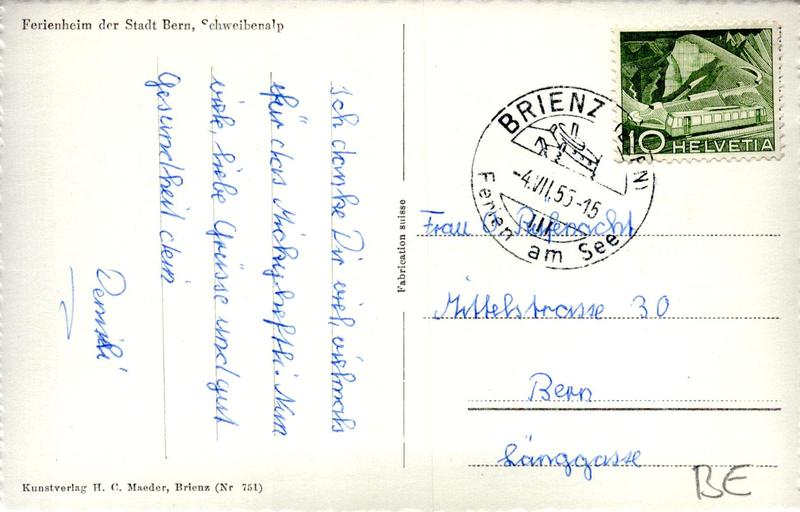 Ferienheim der Stadt Bern, Schweibenalp
Ich danke Dir viel, vielmals
für das Mickyheftli. Nun
viele, liebe Grüsse und gut
Gesundheit dein
Fabrication suisse
10 HELVETIA
BRIENZ (BERN)
-4.VII.55-15
Ferien am See
Frau O. Rufenacht
Mittelstrasse 30
Bern
Länggasse
BE
Kunstverlag H. C. Maeder, Brienz (Nr 751)